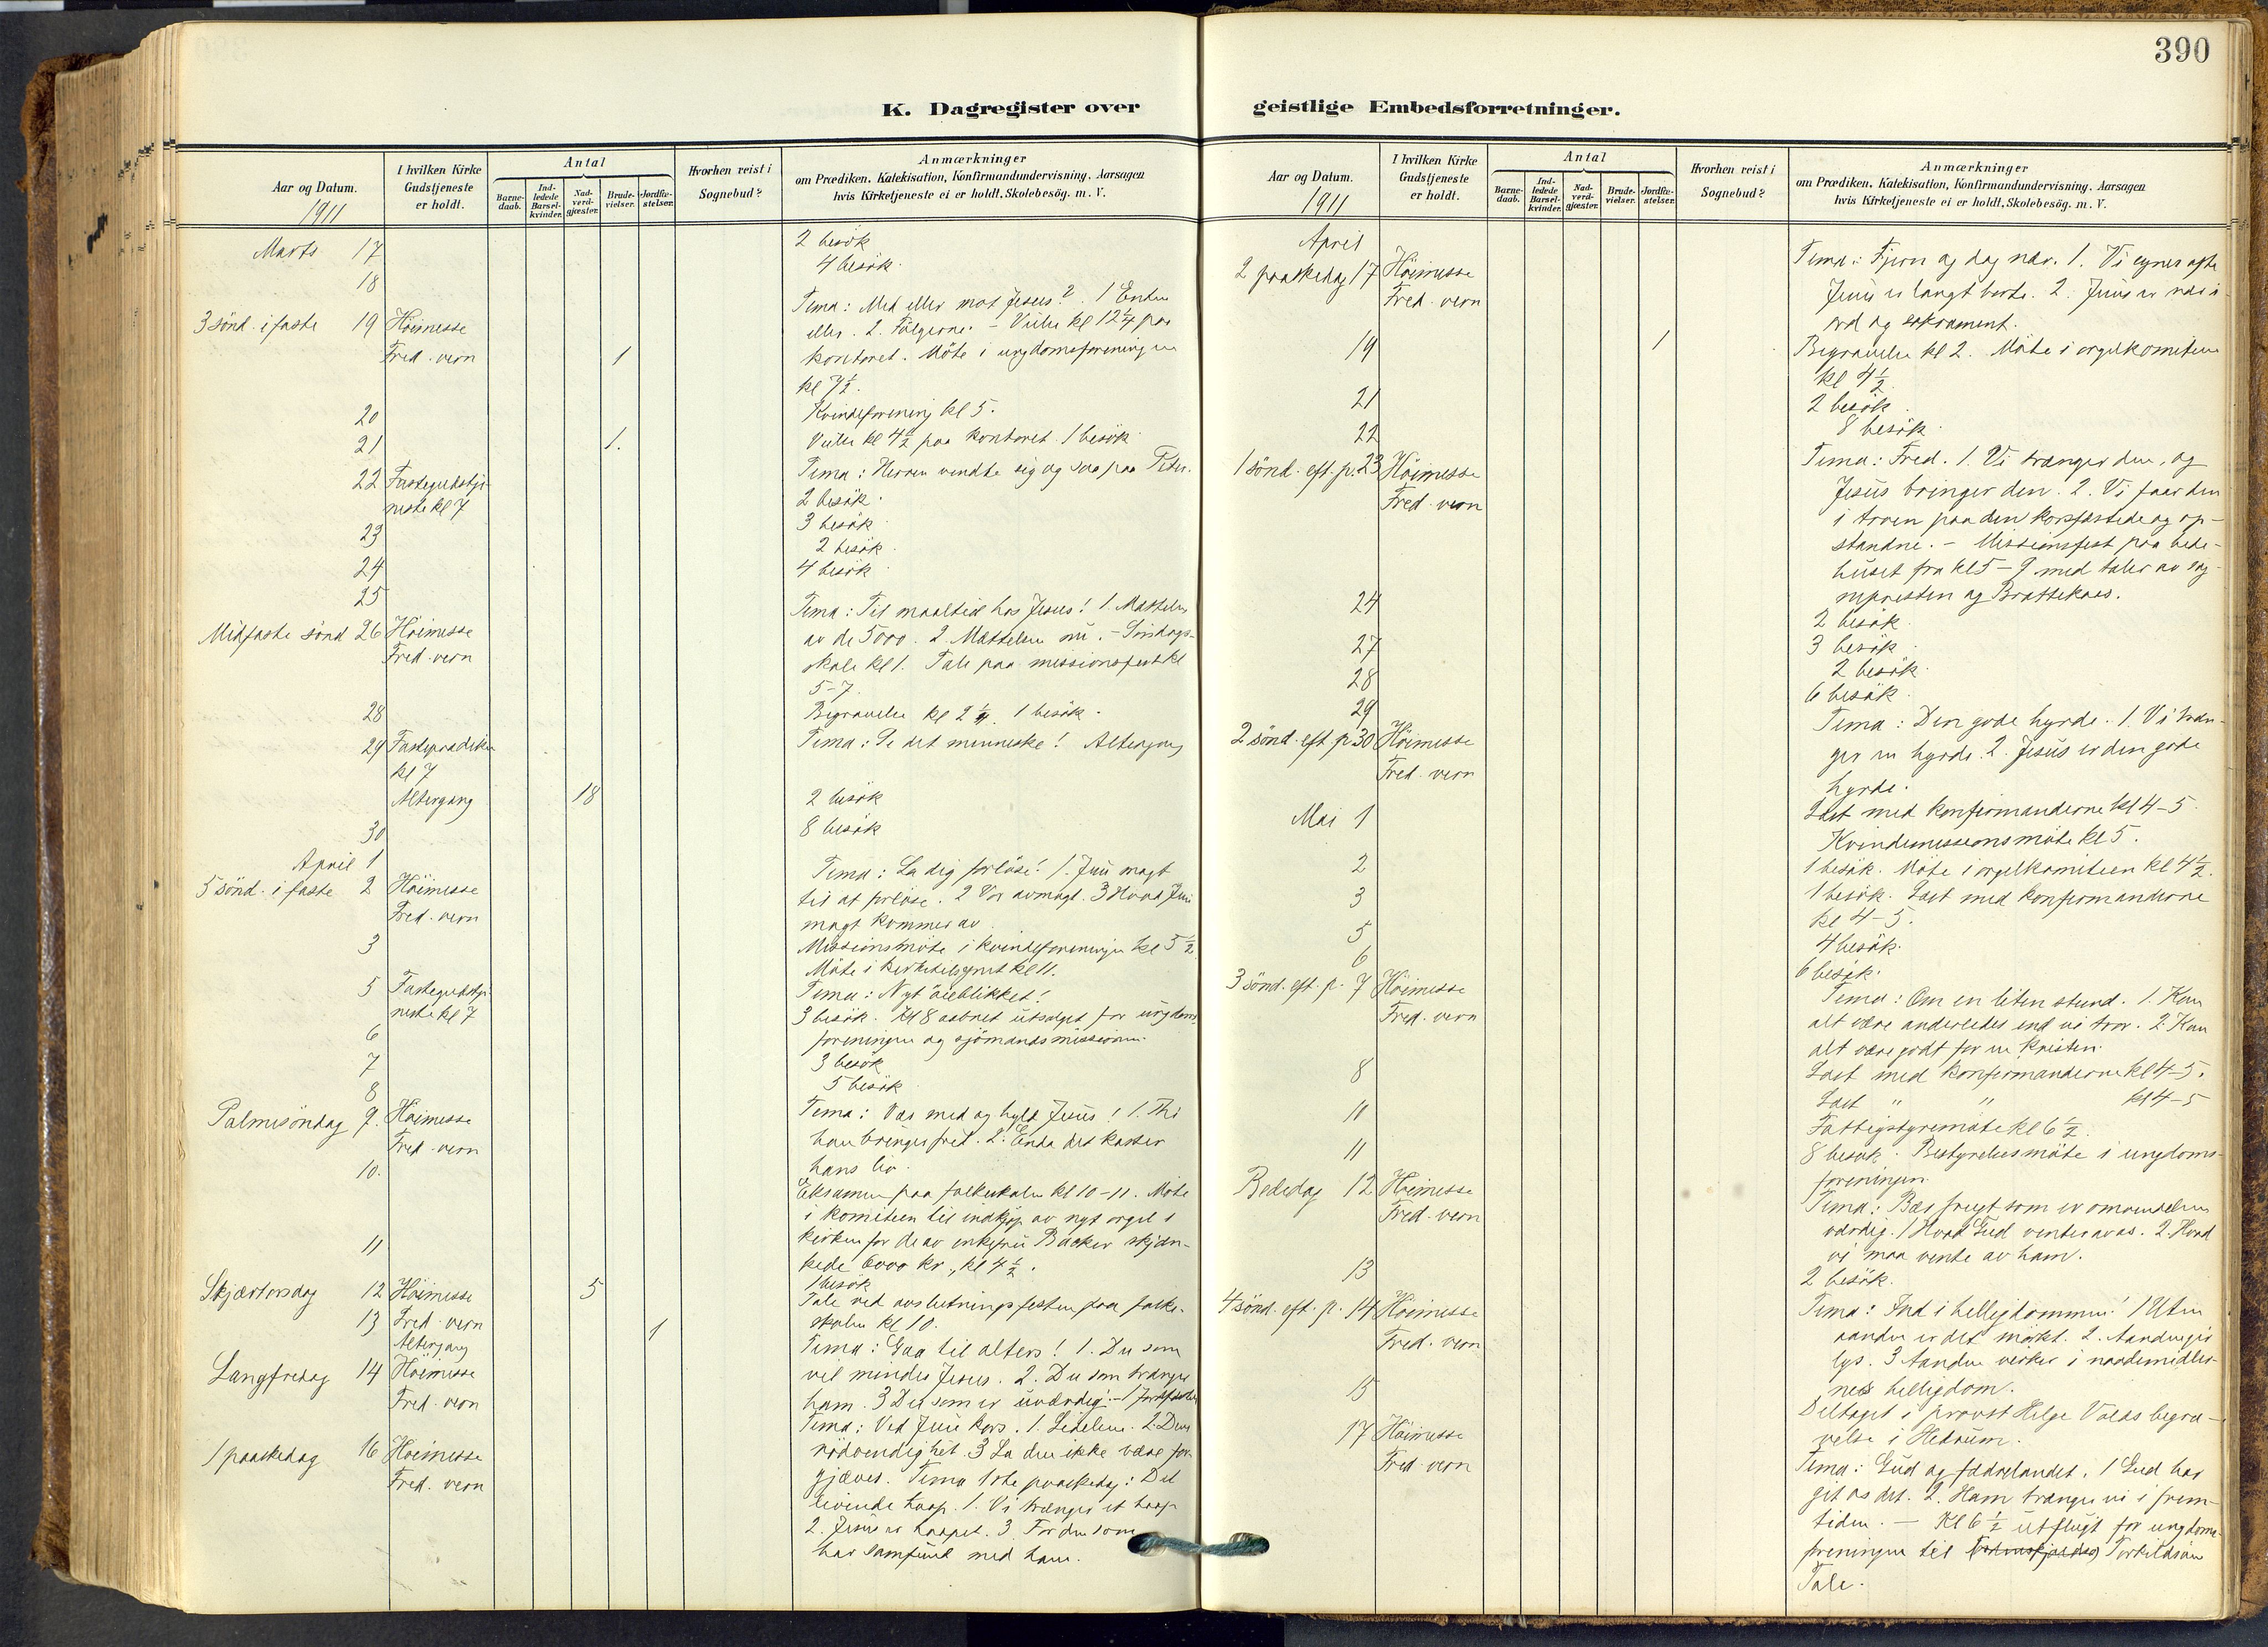 390
K. Dagregister over
Aar og Datum.
1911
I hvilken Kirke Gudstjeneste er holdt.
Antal
Barnedaab.
Indledede Barselkvinder.
Nadverdgjæster.
Brudevielser.
Jordfæstelser.
Hvorhen reist i Sognebud?
Anmærkninger
om Prædiken, Katekisation, Konfirmandundervisning. Aarsagen
hvis Kirketjeneste ei er holdt, Skolebesög. m. V.
Marts 17
2 besök
18
4 besök.
3 sönd. i faste 19 Höimesse
Fred.vern 1
Tema: Med eller mot Jesus? 1 Enten
eller. 2. Fölgerne. - Vielse kl 12 1/4 paa
kontoret. Möte i ungdomsforeningen
kl 7 1/2.
20
Kvindeforening kl 5.
21 1.
Vielse kl 4 1/2 paa kontoret. 1 besök
22 Fastegudstje
neste kl 7
Tema: Herren vendte sig og saa paa Peter.
2 besök.
23
3 besök
24
2 besök.
25
4 besök
Midfaste sönd 26 Höimesse
Fred.vern
Tema: Til maaltid hos Jesus! 1. Mættelsen
av de 5000. 2 Mættelsen nu. - Söndags-
skole kl 1. Tale paa missionsfest kl
5-7.
28
Begravelse kl 2 1/4. 1 besök.
29 Fasteprædiken
kl 7
Altergang 18
Tema: Se det menneske! Altergang
30
2 besök
April 1
8 besök
5 sönd. i faste 2 Höimesse
Fred.vern
Tema: La dig forlöse! 1. Jesu magt
til at forlöse. 2 Vor avmagt. 3 Hvad Jesu
magt kommer av.
3
Missionsmöte i kvindeforeningen kl 5 1/2
Möte i kirketilsynet kl 11.
5 Fastegudstje
neste kl 7
Tema: Nyt öieblikket!
6
3 besök. Kl 8 aabnet utsalget for ungdoms
foreningen og sjömandsmissionen.
7
3 besök
8
5 besök
Palmesöndag 9. Höimesse
Fred.vern
Tema: Vær med og hyld Jesus! 1. Thi
han bringer fred. 2. Enda det koster
hans liv.
10.
Eksamen paa folkeskolen kl 10-11. Möte
i komiteen til indkjöp av nyt orgel i
kirken for de av enkefru Backer skjæn-
kede 6000 kr., kl 4 1/2.
11
1 besök
Skjærtorsdag 12 Höimesse 5
13 Fred.vern
Altergang 1
Tale ved avslutningsfesten paa folke-
skolen kl 10.
Tema: Gaa til alters! 1. Du som
vil mindes Jesus. 2. Du som trænger
ham. 3 Du som er uværdig. - 1 jordfæstelse
Langfredag 14 Höimesse
Fred.vern
Tema: Ved Jesu kors. 1. Lidelsen. 2. Dens
nödvendighet. 3 La den ikke være for-
gjæves.
1 paaskedag 16 Höimesse
Fred.vern
Tema 1ste paaskedag: Det
levende haap. 1. Vi trænger et haap
2. Jesus er haapet. 3. For den som
har samfund med ham.
geistlige Embedsforretninger.
Aar og Datum.
1911
I hvilken Kirke Gudstjeneste er holdt.
Antal
Barnedaab.
Indledede Barselkvinder.
Nadverdgjæster.
Brudevielser.
Jordfæstelser.
Hvorhen reist i Sognebud?
Anmærkninger
om Prædiken, Katekisation, Konfirmandundervisning. Aarsagen
hvis Kirketjeneste ei er holdt, Skolebesög. m. V.
April
2 paaskedag 17 Höimesse
Fred.vern
Tema: Fjern og dog nær. 1. Vi synes ofte
Jesus er langt borte. 2. Jesus er nær i
ord og sakrament.
19 1
Begravelse kl 2. Möte i orgelkomiteen
kl 4 1/2.
21
2 besök.
22
8 besök.
1 sönd. eft. p. 23 Höimesse
Fred.vern
Tema: Fred. 1. Vi trænger den, og
Jesus bringer den. 2. Vi faar den
i troen paa den korsfæstede og op-
standne. - Missionsfest paa bede-
huset fra kl 5-9 med taler av sog-
nepresten og Brattekaas.
24
2 besök
27
3 besök
28
2 besök
29
6 besök.
2 sönd. eft p 30 Höimesse
Fred.vern
Tema: Den gode hyrde. 1. Vi træn-
ger en hyrde. 2. Jesus er den gode
hyrde.
Mai 1
Læst med konfirmanderne kl 4-5.
Kvindemissionsmöte kl 5.
2
1 besök. Möte i orgelkomiteen kl 4 1/2.
3
1 besök. Læst med konfirmanderne
kl 4-5.
5
4 besök.
6
6 besök.
3 sönd. eft. p. 7 Höimesse
Fred.vern
Tema: Om en liten stund. 1. Kan
alt være anderledes end vi tror. 2. Kan
alt være godt for en kristen.
8
Læst med konfirmanderne kl 4-5.
11
Læst " " kl 4-5
Fattigstyremöte kl 6 1/2.
11
8 besök. Bestyrelsesmöte i ungdoms-
foreningen.
Bededag 12 Höimesse
Fred.vern
Tema: Bær frugt som er omvendelsen
værdig. 1 Hvad Gud venter av os. 2. Hvad
vi maa vente av ham.
13
2 besök.
4 sönd. eft. p. 14 Höimesse
Fred.vern
Tema: Ind i helligdommen! 1 Uten
aanden er det mörkt. 2. Aanden gir
lys. 3 Aanden virker i naademidler-
nes helligdom.
15
Deltaget i provst Helge Volds begra-
velse i Hedrum.
17 Höimesse
Fred.vern
Tema: Gud og fædrelandet. 1 Gud har
git os det. 2. Ham trænger vi i frem-
tiden. - Kl 6 1/2 utflugt for ungdoms-
foreningen til Torkildsöen
Tale.